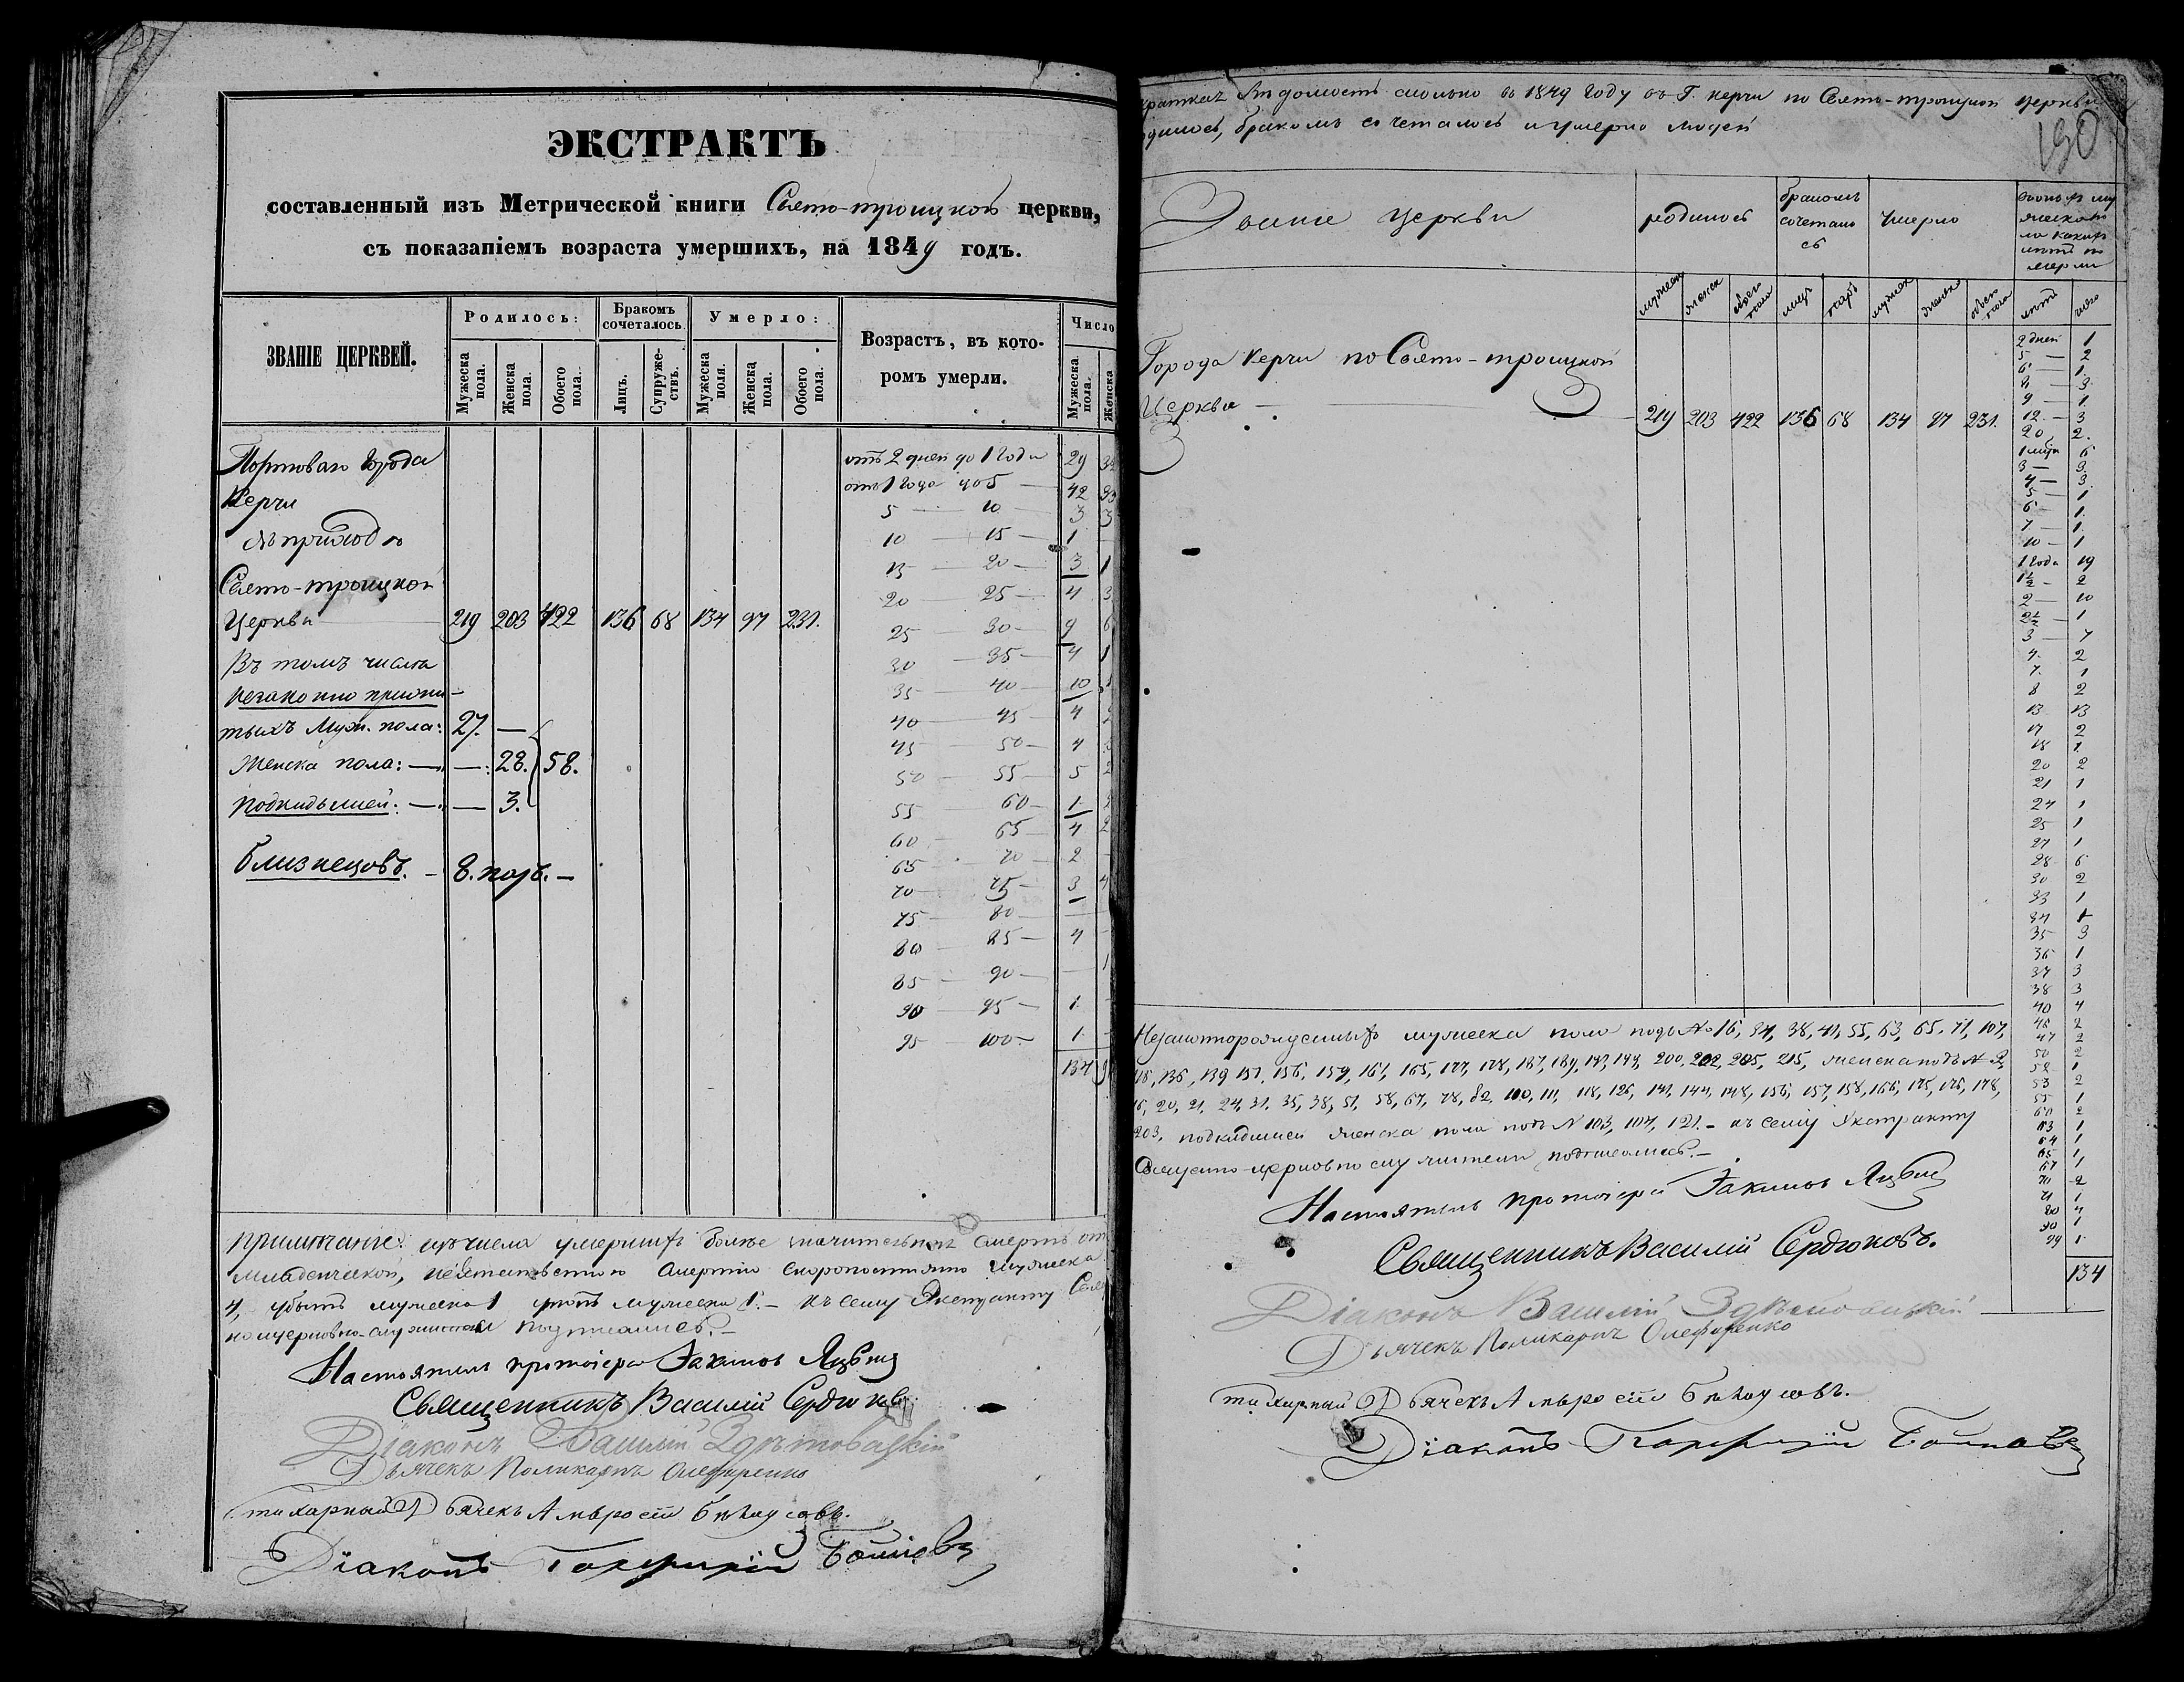 ЭКСТРАКТЪ
составленный изъ Метрической книги Свято-троицкой церкви,
съ показаніемъ возраста умершихъ, на 1849 годъ.
ЗВАНІЕ ЦЕРКВЕЙ.
Родилось:
Бракомъ сочеталось
Умерло:
Возрастъ, въ кото-
ромъ умерли.
Число
Мужеска пола. Женска пола. Обоего пола. Лицъ. Супруже-ствъ. Мужеска поля. Женска пола. Обоего пола. Мужеска пола. Женска
Портоваго Города
Керчи
въ приходѣ
Свято-троицкой
Церкви 219 203 422 136 68 134 97 231.
Въ томъ числѣ
незаконно прижи-
тыхъ Муж. пола: 27. —
Женска пола: — — 28. 58.
подкидышей: — — 3.
близнецовъ. — 8. паръ. —
отъ 2 дней до 1 Года 29
отъ 1 Года до 5 — 42
5 — 10 — 3 3
10 — 15 — 1
15 — 20 — 3 1
20 25 — 4 3
25 — 30 — 9 6
30 — 35 — 4 1
35 — 40 — 10
40 — 45 — 4
45 — 50 — 4
50 — 55 — 5 2
55 60 — 1
60 — 65 — 4 2
65 — 70 — 2
70 — 75 — 3 4
75 — 80 —
80 — 85 — 4
85 — 90 — — 1
90 — 95 — 1
95 — 100 — 1
134
Примѣчаніе: изъ числа умершихъ болѣе значительная смерть от
младенческой, неестественною смертію скоропостижно мужеска
4, убитъ мужеска 1 мужеска 1. — Къ сему Экстракту
Настоятель протоіерей
Священникъ Василій Сердюковъ
Діаконъ Василій
Дьячекъ Поликарпъ Олефиренко
Дьячекъ Амвросій Бѣлоусовъ.
Діаконъ
Краткая Вѣдомость сколько въ 1849 году въ Г. Керчи по Свято-троицкой церкви
родилось, бракомъ сочеталось и умерло людей
190
Званіе церкви
родилось
бракомъ
сочетало
сь
Умерло
мужеск женска обоего пола лицъ паръ мужеск женска обоего пола лѣтъ число
Города Керчи по Свято-троицкой
Церкви — 219 203 422 136 68 134 97 231.
2 дней 1
5 — 2
6 — 1
8 — 3
9 — 1
12 — 3
20 2
1 мѣсяца 6
3 — 3
4 — 3
5 — 1
6 — 1
7 — 1
10 — 1
1 Года 19
1½ — 2
2 — 10
2½ — 1
3 — 7
4 2
7 1
8 2
13
17 2
18 1
20 2
21 1
24 1
25 1
27 1
28 6
30 2
33 1
34 1
35 3
36 1
37 3
38 3
40 4
2
47 2
50 2
52 1
53 2
55 1
60 2
63 1
64 1
65 1
67 1
70 2
71 1
80 4
90 1
99 1
134
Незаконнорожденныхъ мужеска пола подъ № 16, 34, 38, 41, 55, 63, 65, 71, 107,
118, 136, 139, 151, 156, 159, 161, 165, 177, 178, 187, 189, 200, 202, 205, 215, женска подъ № 2,
16, 20, 21, 24, 31, 35, 38, 51, 58, 67, 78, 82, 100, 111, 118, 126, 141, 144, 148, 156, 157, 158, 166, 175, 176, 178,
203, подкидышей женска пола подъ № 103, 107, 121. — къ сему Экстракту
Священно-церковно служители подписались. —
Настоятель протоіерей
Священникъ Василій Сердюковъ.
Діаконъ Василій
Дьячекъ Поликарпъ Олефиренко
Дьячекъ Амвросій Бѣлоусовъ.
Діаконъ